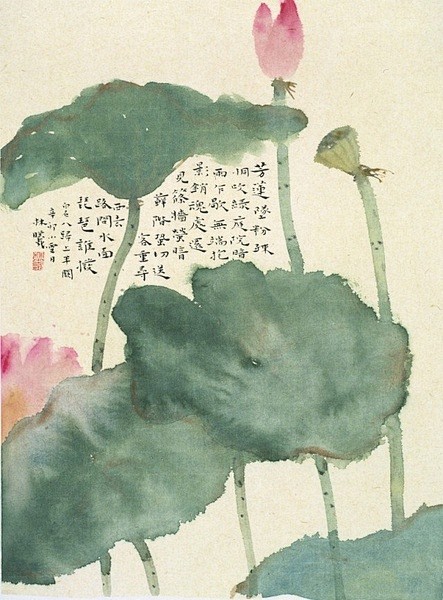 芳蓮墜粉疎
桐吹綠庭院暗
雨乍歇無端抱
影銷魂處還
見篠牆螢暗
蘚階蛩切送
客重尋
西去
路問水面
琵琶誰撥
白石八歸上半闋
辛卯小雪日
林曦